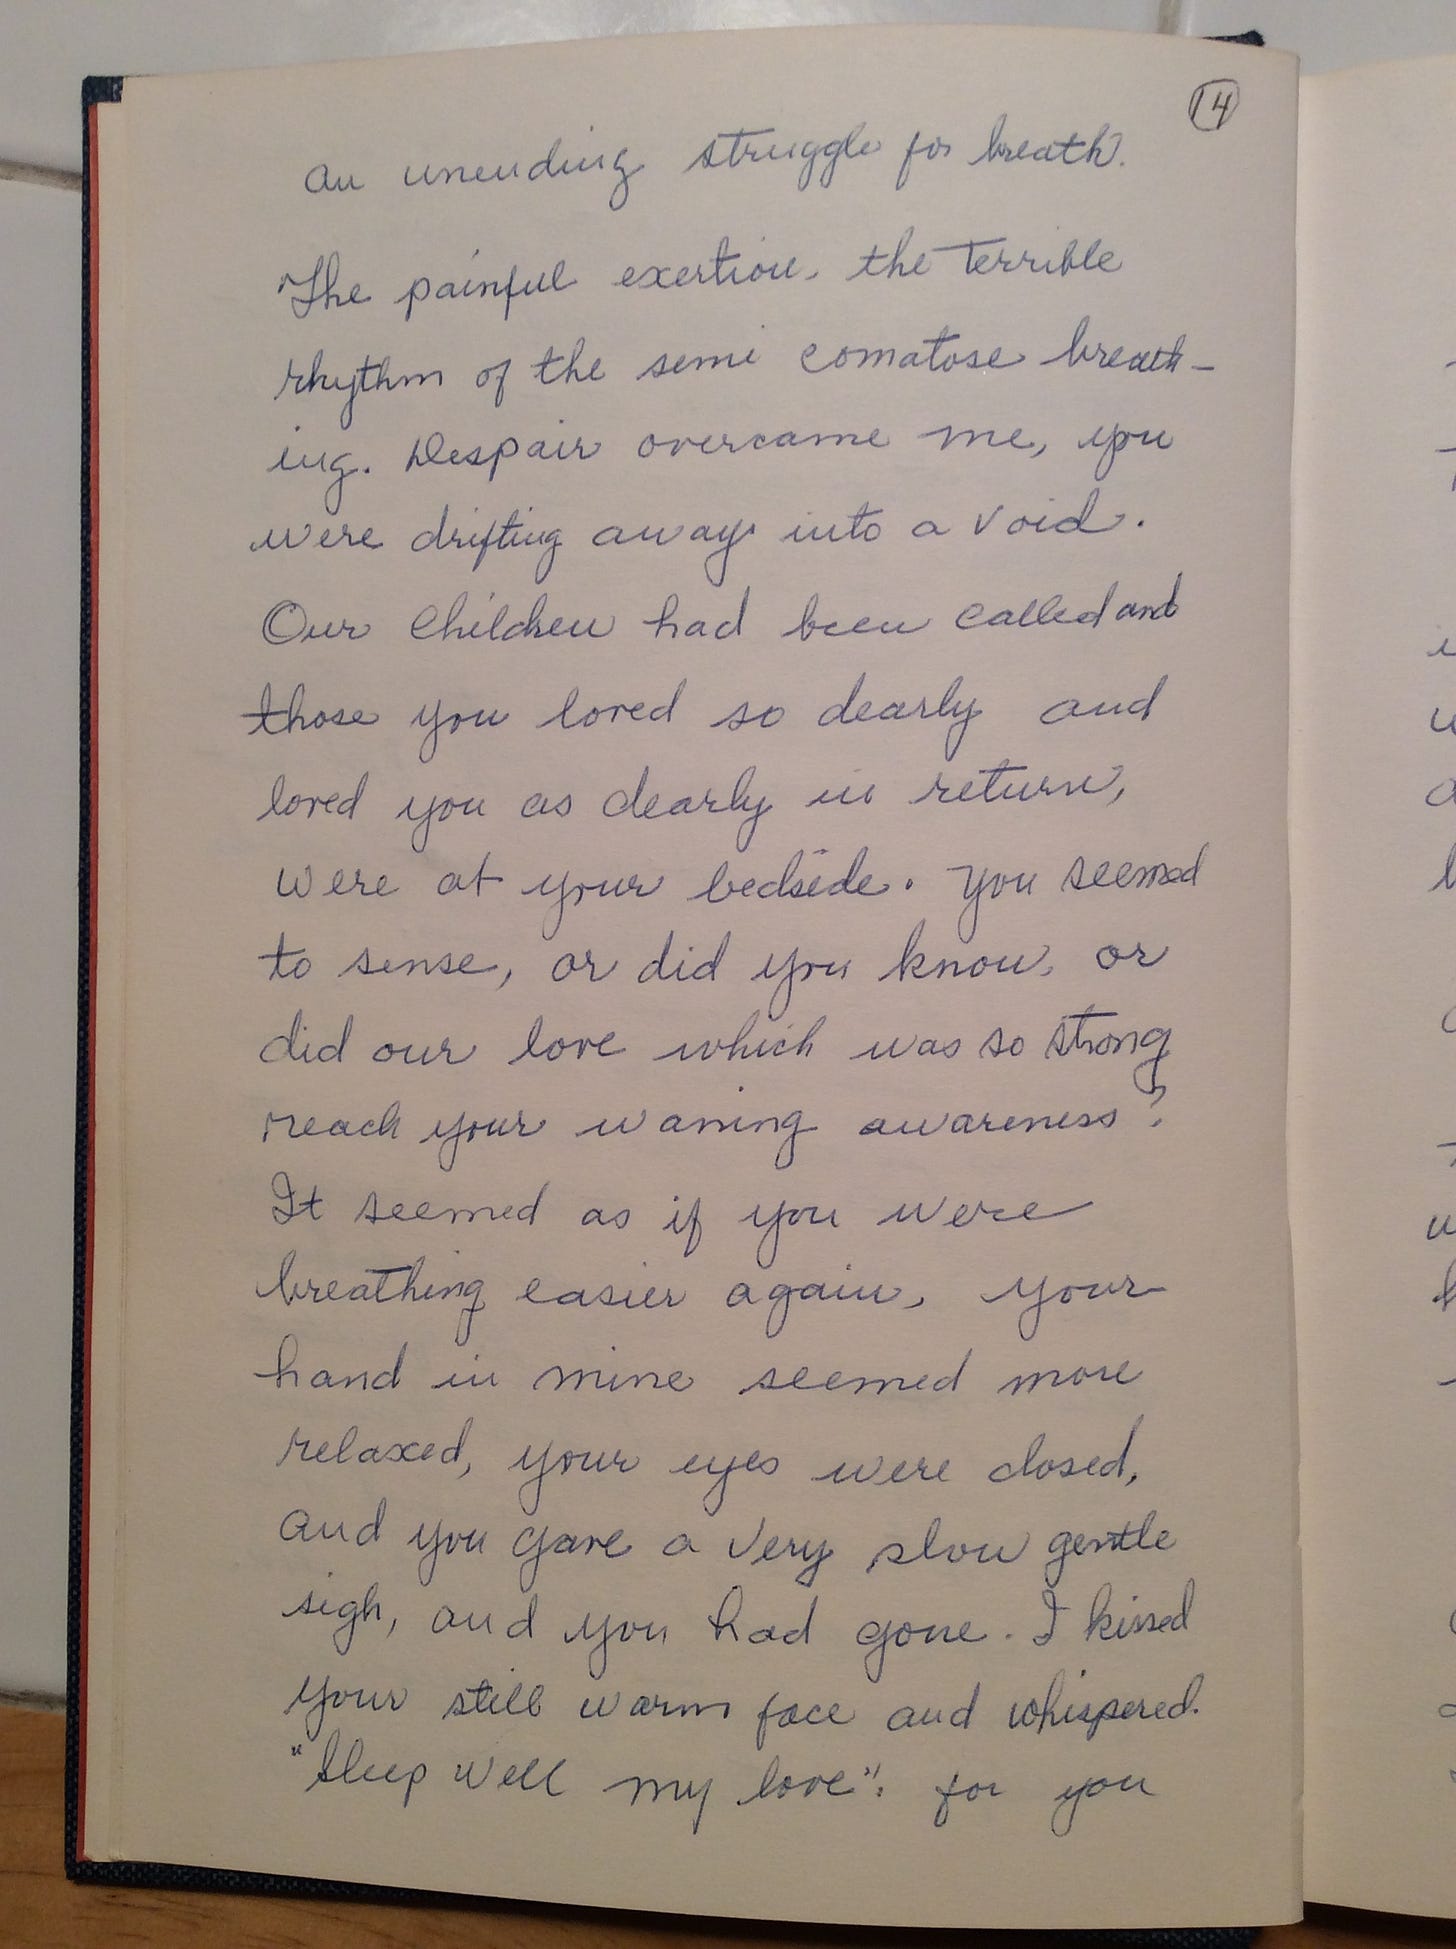 14
an unending struggle for breath.
The painful exertion, the terrible
rhythm of the semi comatose breath-
ing. Despair overcame me, you
were drifting away into a void.
Our children had been called and
those you loved so dearly and
loved you as dearly in return,
were at your bedside. You seemed
to sense, or did you know, or
did our love which was so strong
reach your waning awareness?
It seemed as if you were
breathing easier again, your
hand in mine seemed more
relaxed, your eyes were closed,
and you gave a very slow gentle
sigh, and you had gone. I kissed
your still warm face and whispered.
"Sleep well my love". for you